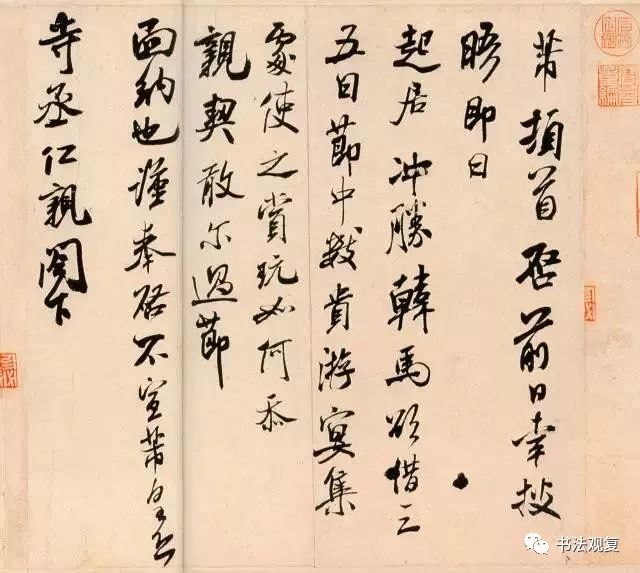 芾頓首启前日幸披
晤即日
起居冲勝韓馬欲借三
五日節中數貴游宴集
處使之賞玩如何忝
親契敢尔過節
面纳也謹奉啓不宣芾皇恐
寺丞仁親閣下
书法观复